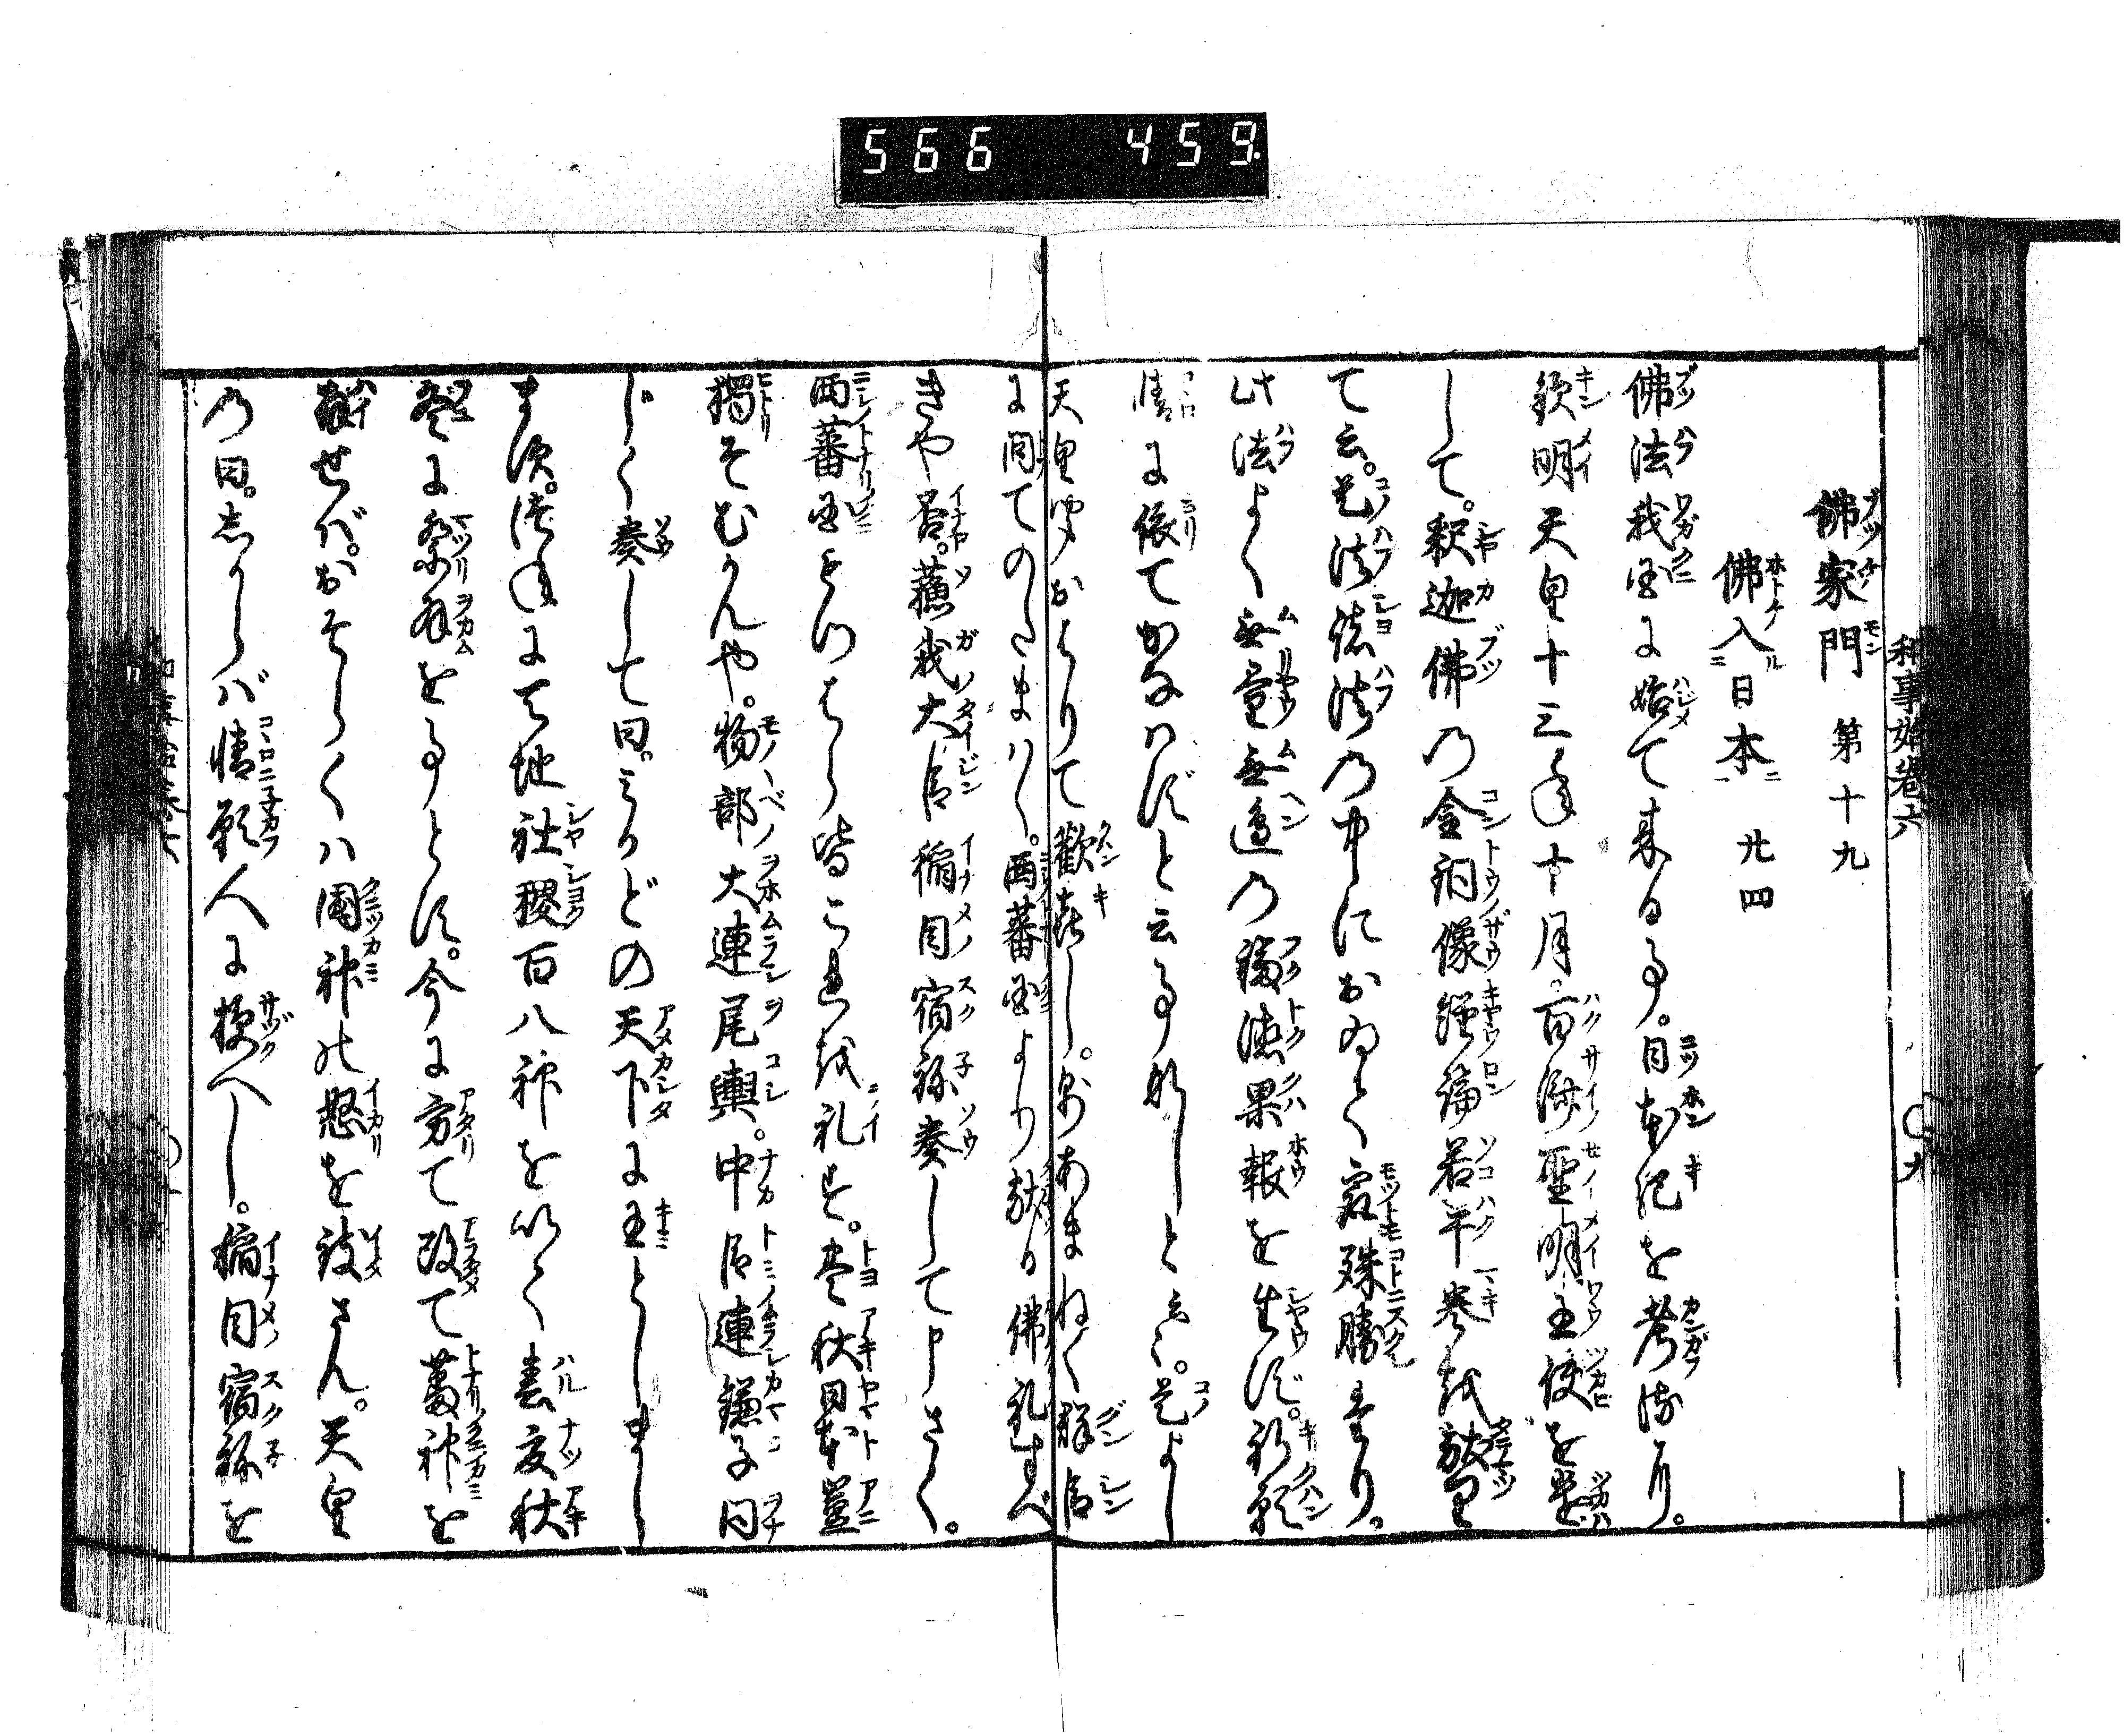 566 459
和事始巻六
佛家門 第十九
佛入日本 廿四
佛法我国に始て来る事。日本紀を考侍り。
欽明天皇十三年十月。百済聖明王使を遣
して。釈迦佛の金銅像経論若干巻を献り
て云。是法諸法の中におゐて最殊勝たり。
此法よく無量無邊の福徳果報を生ず。祈願
情に依てかなはずと云事なしと云々。是よし
天皇きかおはりて歓喜し。あまねく群臣
に問てのたまはく。西蕃国より献る佛礼すべ
きや否。蘇我大臣稲目宿祢奏して申さく。
西蕃国もつはら皆これを礼す。豊秋日本豈
獨そむかんや。物部大連尾輿。中臣連鎌子同
じく奏して曰。みかどの天下に王としまし
ます。は天地社稷百八神を以て春夏秋
冬に祭拝を事とす。今に方て改て蕃神を
拝せば。おそらくは國神の怒を致さん。天皇
の曰。しからば情願人に授べし。稲目宿祢を